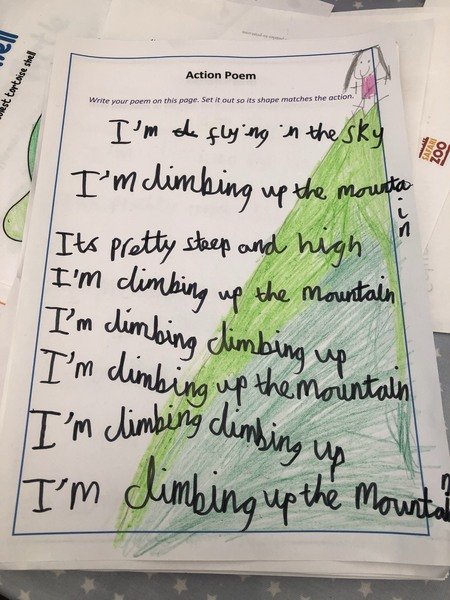 Action Poem
Write your poem on this page. Set it out so its shape matches the action.
I'm flying in the sky
I'm climbing up the mountain
Its pretty steep and high
I'm climbing up the mountain
I'm climbing climbing up
I'm climbing up the mountain
I'm climbing climbing up
I'm climbing up the mountain
SAFARI
ZOO